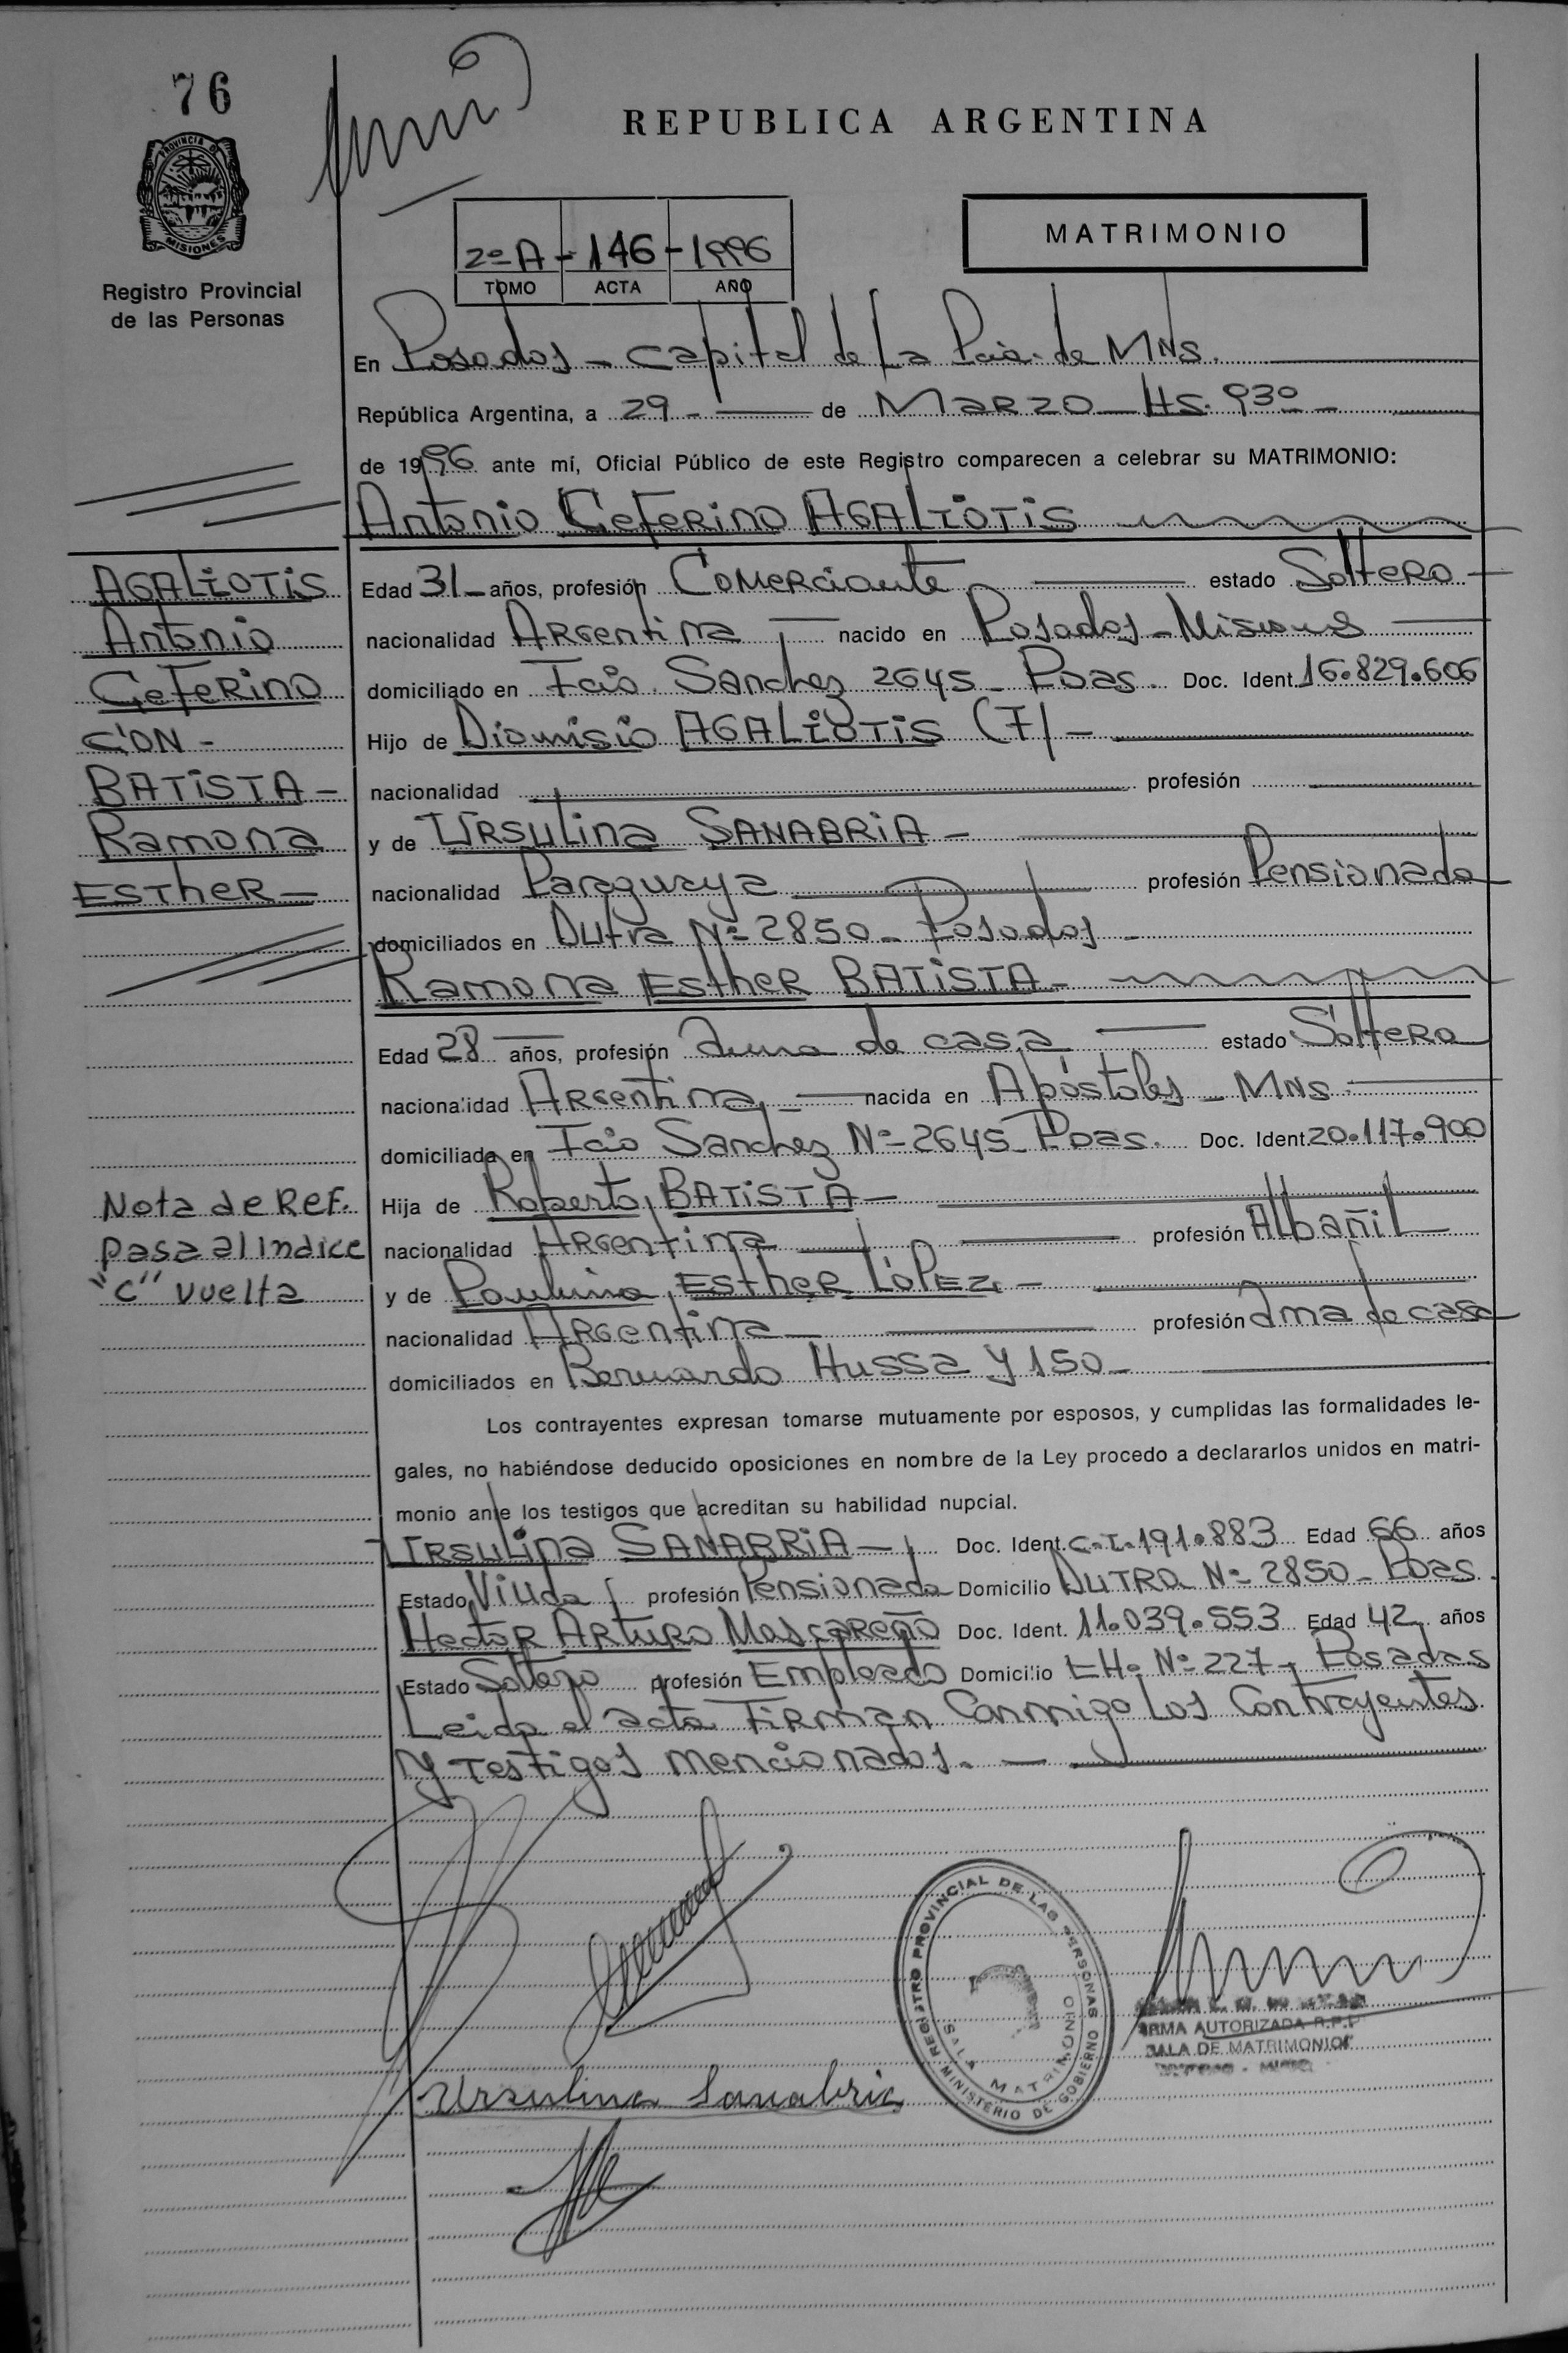 76
REPUBLICA ARGENTINA
PROVINCIA DE
MISIONES
Registro Provincial
de las Personas
MATRIMONIO
2º A - 146 - 1996
TOMO ACTA AÑO
En Posadas - capital de la Pcia. de MNS.
República Argentina, a 29 - de Marzo Hs. 9 30 -
de 1996 ante mí, Oficial Público de este Registro comparecen a celebrar su MATRIMONIO:
Antonio Ceferino AGALIOTIS
AGALIOTIS
Antonio
Ceferino
CON -
BATISTA -
Ramona
Esther -
Edad 31 - años, profesión Comerciante estado Soltero
nacionalidad Argentina nacido en Posadas - Misiones
domiciliado en Fcio. Sanchez 2645 - Pdas. Doc. Ident. 16.829.606
Hijo de Dionisio AGALIOTIS (F) -
nacionalidad profesión
y de Ursulina SANABRIA -
nacionalidad Paraguaya profesión Pensionada
domiciliados en Dutra Nº 2850 - Posadas -
Ramona Esther BATISTA -
Edad 28 años, profesión ama de casa estado Soltera
nacionalidad Argentina, - nacida en Apóstoles - MNS
domiciliada en Fcio Sanchez Nº 2645 - Pdas. Doc. Ident. 20.117.900
Hija de Roberto BATISTA -
nacionalidad Argentina profesión Albañil
y de Paulina Esther LOPEZ -
nacionalidad Argentina - profesión ama de casa
domiciliados en Bernardo Hussa y 150 -
Nota de Ref.
pasa al indice
"C" vuelta
Los contrayentes expresan tomarse mutuamente por esposos, y cumplidas las formalidades le-
gales, no habiéndose deducido oposiciones en nombre de la Ley procedo a declararlos unidos en matri-
monio ante los testigos que acreditan su habilidad nupcial.
Ursulina SANABRIA - Doc. Ident. C.I. 191.883 Edad 66 años
Estado Viuda profesión Pensionada Domicilio Dutra Nº 2850 - Pdas.
Hector Arturo Mascareño Doc. Ident. 11.039.553 Edad 42 años
Estado Soltero profesión Empleado Domicilio Nº 227 - Posadas
Leida el acta Firman Conmigo Los Contrayentes
y Testigos mencionados. -
REGISTRO PROVINCIAL DE LAS PERSONAS
MINISTERIO DE GOBIERNO
SALA MATRIMONIO
FIRMA AUTORIZADA R.P.P.
SALA DE MATRIMONIOS
Ursulina Sanabria